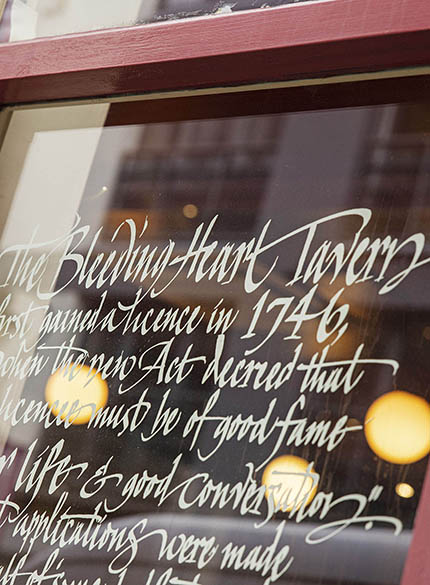 The Bleeding Heart Tavern
first gained a licence in 1746,
when the new Act decreed that
licences must be of good fame
life & good conversation."
applications were made